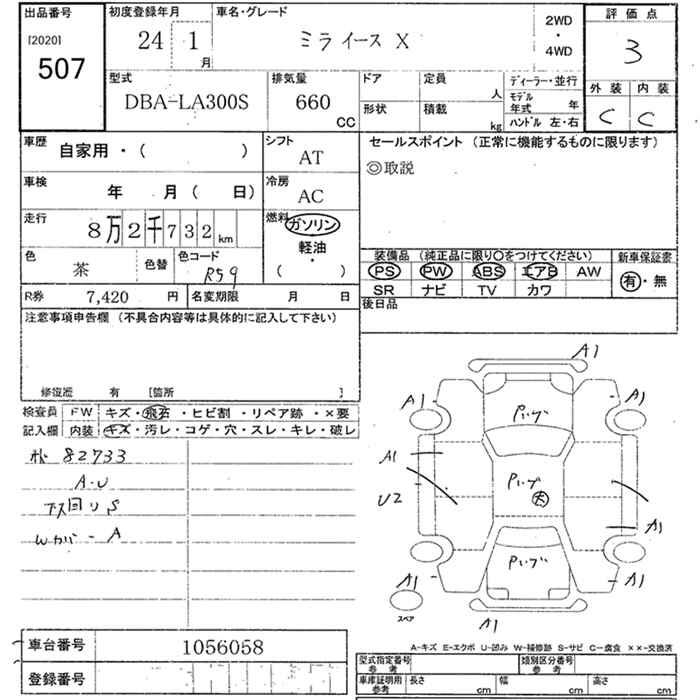 出品番号
[2020]
507
初度登録年月
24 1
月
車名・グレード
ミライース X
2WD
・
4WD
評価点
3
外装 内装
C C
型式
DBA-LA300S
排気量
660
CC
ドア
形状
定員
人
積載
kg
ディーラー・並行
モデル年式 年
ハンドル 左・右
車歴
自家用・( )
シフト
AT
車検
年 月( 日)
冷房
AC
走行
8万2千732km
燃料
ガソリン
軽油
・
( )
色
茶
色替
色コード
R59
R券 7,420 円
名変期限 月 日
セールスポイント (正常に機能するものに限ります)
◎取説
装備品 (純正品に限り○をつけてください)
PS PW ABS エアB AW
SR ナビ TV カワ
新車保証書
有・無
後日品
注意事項申告欄 (不具合内容等は具体的に記入して下さい)
修復歴 有 [箇所 ]
検査員 FW キズ・飛石・ヒビ割・リペア跡・×要
記入欄 内装 キズ・汚レ・コゲ・穴・スレ・キレ・破レ
82733
A・U
下回りS
Wカバー A
A1
A1
Pいづ
A1
A1
Pいづ
大
U2
A1
Pいづ
A1
A1
スペア
A1
A-キズ E-エクボ U-凹み W-補修跡 S-サビ C-腐食 ××-交換済
車台番号 1056058
登録番号
型式指定番号
参考
類別区分番号
参考
車庫証明用
参考
長さ cm
幅 cm
高さ cm